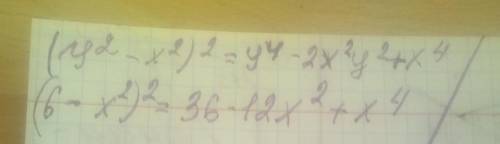 (y² - x²)² = y⁴ - 2x²y² + x⁴
(6 - x²)² = 36 - 12x² + x⁴